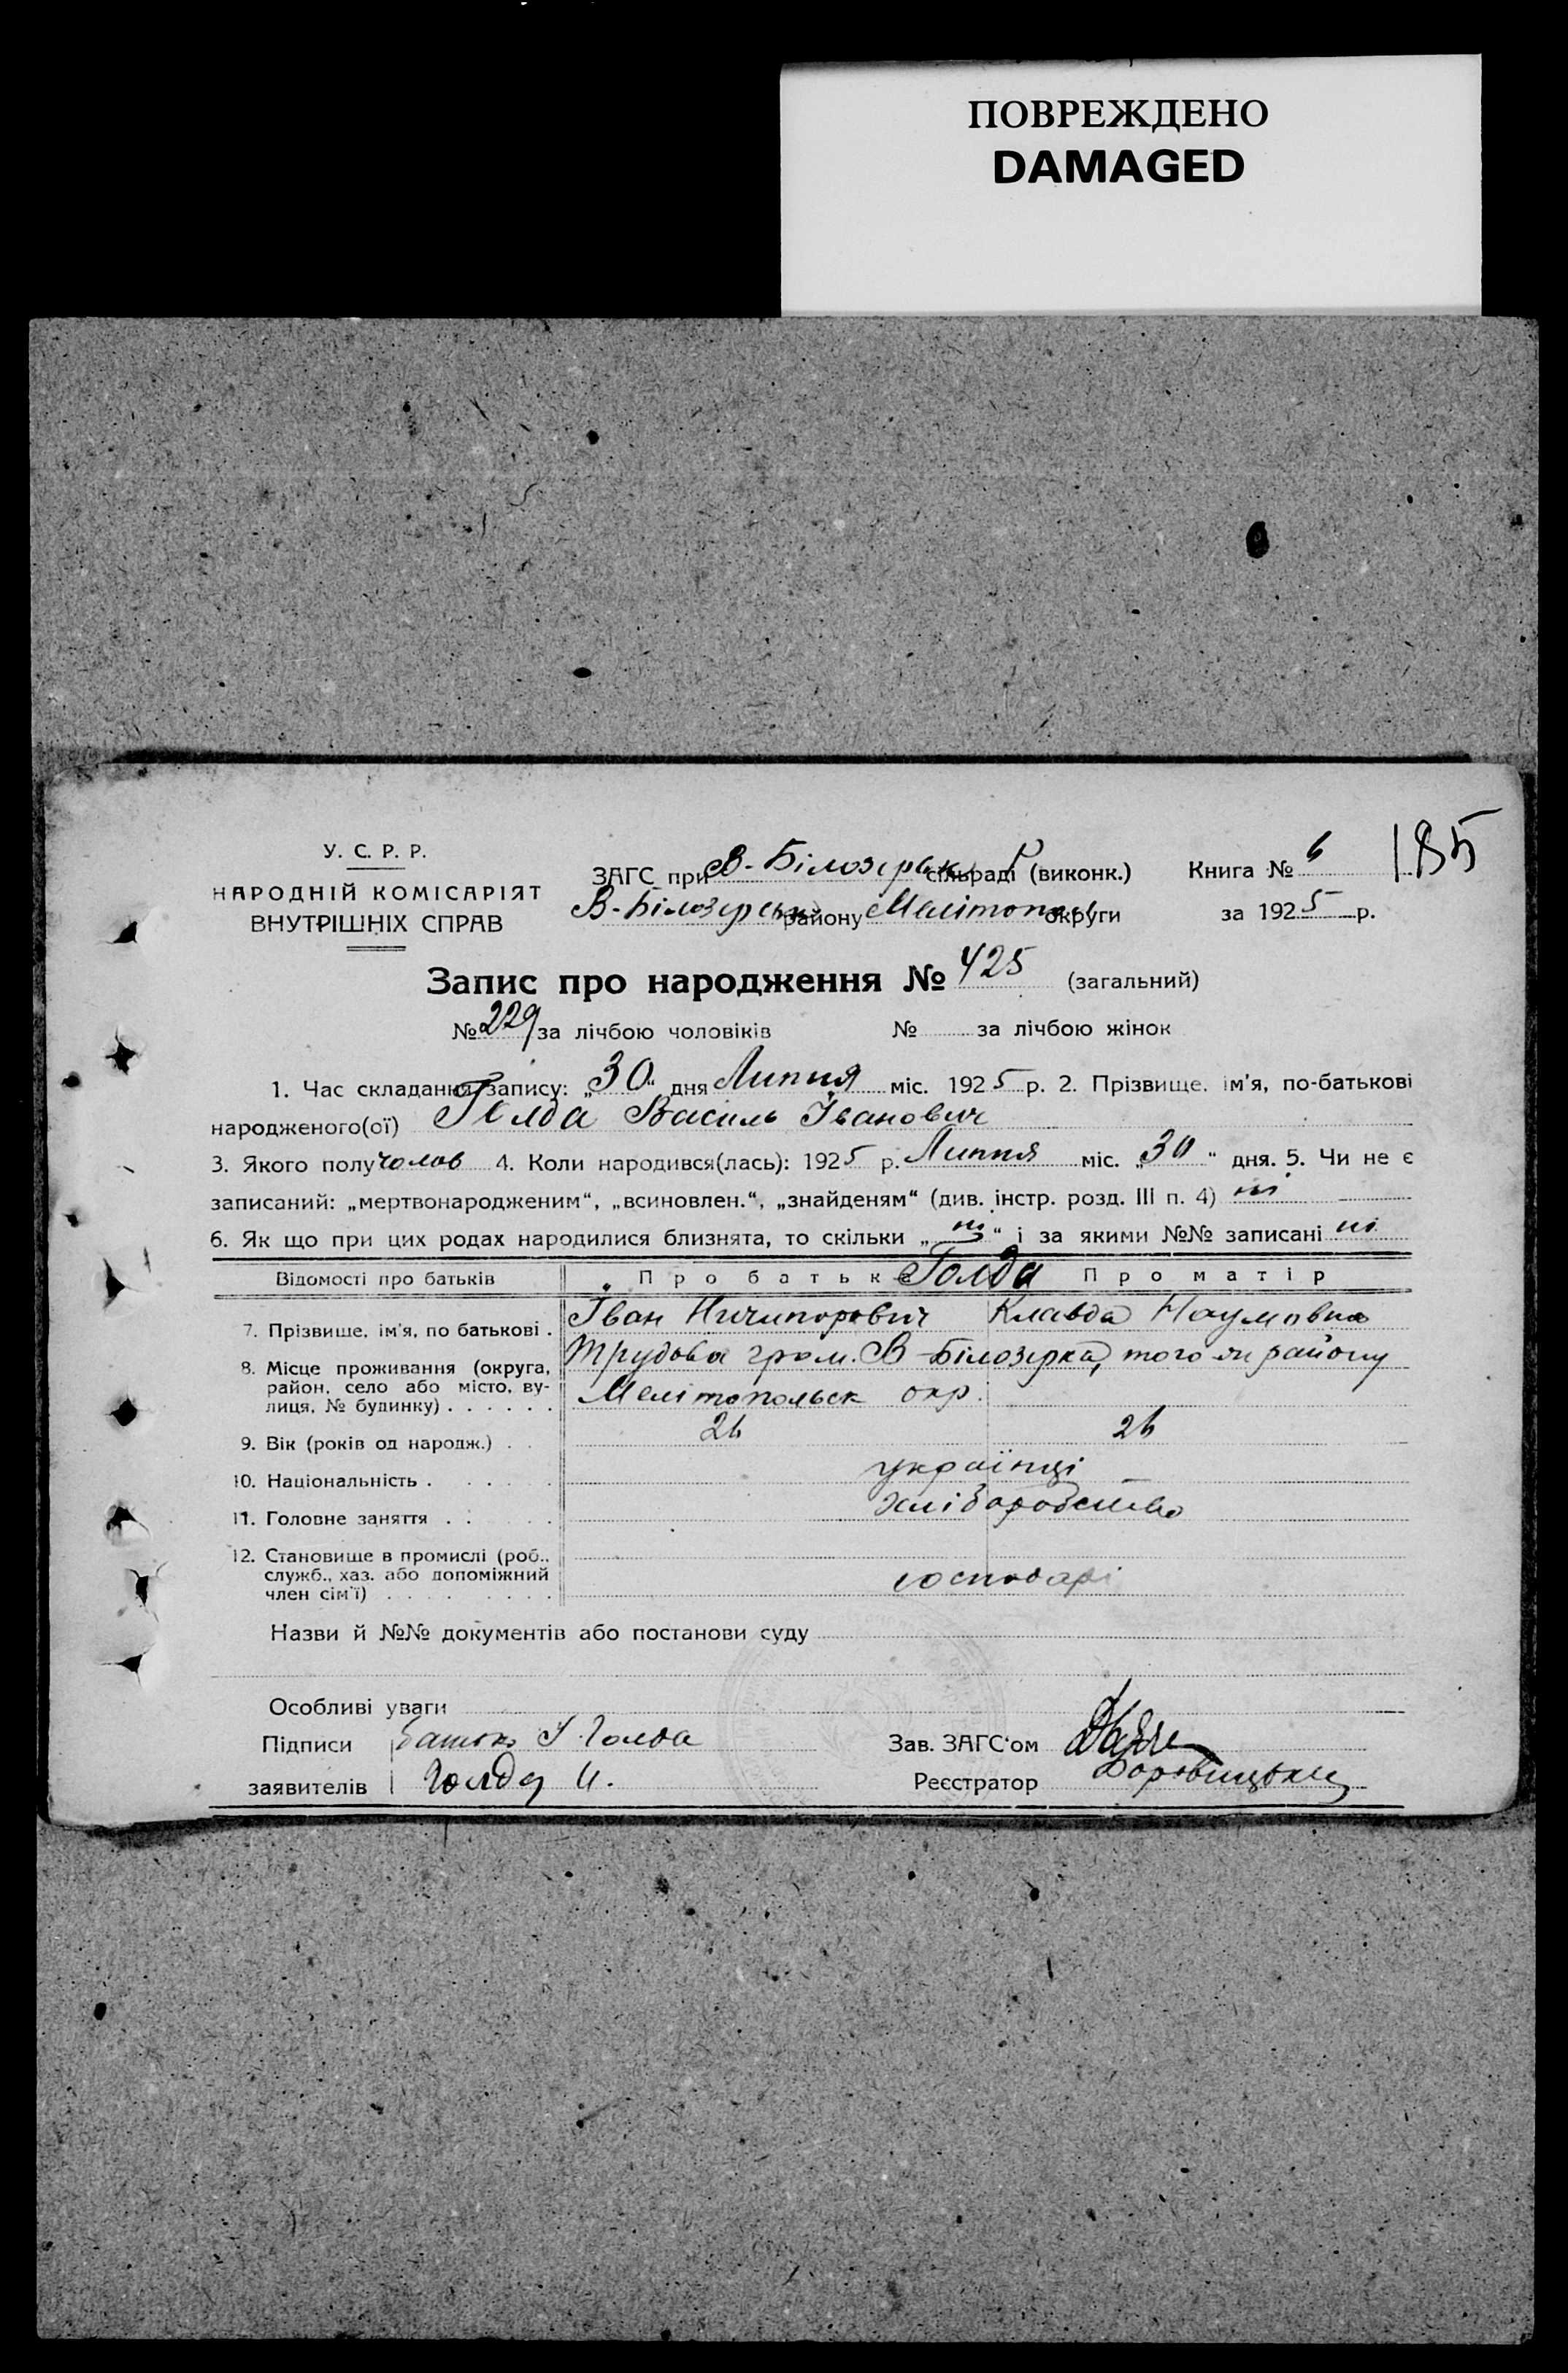 ПОВРЕЖДЕНО
DAMAGED
185
У. С. Р. Р.
НАРОДНІЙ КОМІСАРІЯТ
ВНУТРІШНІХ СПРАВ
ЗАГС при В-Білозерськ сільраді (виконк.) Книга № 6
В-Білозерськ району Мелітопол округи за 1925 р.
Запис про народження № 425 (загальний)
№ 229 за лічбою чоловіків № за лічбою жінок
1. Час складання запису: „30“ дня Липня міс. 1925 р. 2. Прізвище, ім'я, по-батькові
народженого(ої) Голда Василь Іванович
3. Якого полу чолов 4. Коли народився(лась): 1925 р. Липня міс. „30“ дня. 5. Чи не є
записаний: „мертвонародженим“, „всиновлен.“, „знайденям“ (див. інстр. розд. III п. 4) ні
6. Як що при цих родах народилися близнята, то скільки „ні“ і за якими №№ записані ні
Відомості про батьків Про батька Голда Про матір
7. Прізвище, ім'я, по батькові . Іван Ничипорович Клавда Наумовна
8. Місце проживання (округа, Трудова гром. В-Білозерка, того ж району
район, село або місто, ву-
лиця, № будинку) . . . . . . Мелітопольск окр.
9. Вік (років од народж.) . . 26 26
10. Національність . . . . . . українці
11. Головне заняття . . . . . хліборобство
12. Становище в промислі (роб.,
служб., хаз. або допоміжний
член сім'ї) . . . . . . . . господарі
Назви й №№ документів або постанови суду
Особливі уваги
Підписи батько І Голда Зав. ЗАГС'ом
заявителів Голда И. Реєстратор